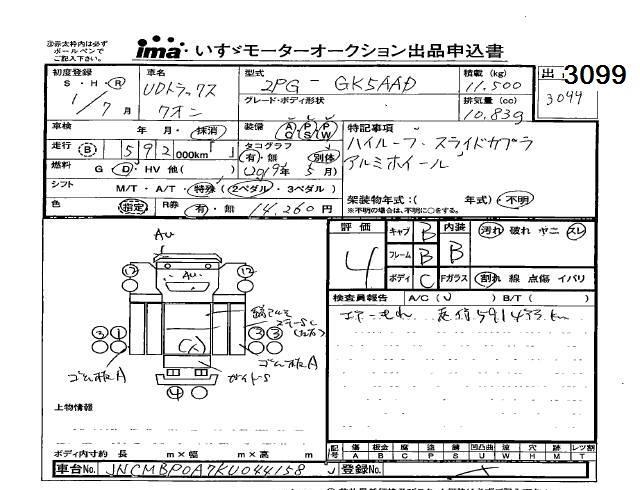 ※赤太枠内は必ず
ボールペンで
ご記入下さい。
ima いすゞモーターオークション出品申込書
初度登録 車名 型式 積載 (kg) 出 3099
S・H・R UDトラックス 2PG - GK5AAD 11.500 3099
1/7月 クオン グレード・ボディ形状 排気量 (cc)
10.839
車検 年 月・抹消 装備 AC PS PW 特記事項
走行 (B) 592 000km タコグラフ ハイルーフ・スライドカプラ
有・無 別体 アルミホイール
燃料 G D・HV 他( ) (2019年 5月)
シフト M/T・A/T・特殊(2ペダル・3ペダル) 架装物年式:( 年式)・不明
色 指定 R券 有・無 14.260円 ※不明の場合は、不明に○をする。
評価 4 キャブ B 内装 B 汚れ 破れ ヤニ スレ
フレーム B
ボディ C Fガラス 割れ 線 点傷 イバリ
検査員報告 A/C(✓) B/T( )
エアーもれ 走行591433km
AU
AU
12 12
3 1 3 3
ゴム板A ゴム板A
ガイドS
4
上物情報
ボディ内寸約 長 m×幅 m×高 m
記号 傷 板金 腐 塗 錆 凹凸曲 要 穴 跡 レツ割
A B C P S U W H M T
車台No. JNCMBP0A7KU044158 登録No.